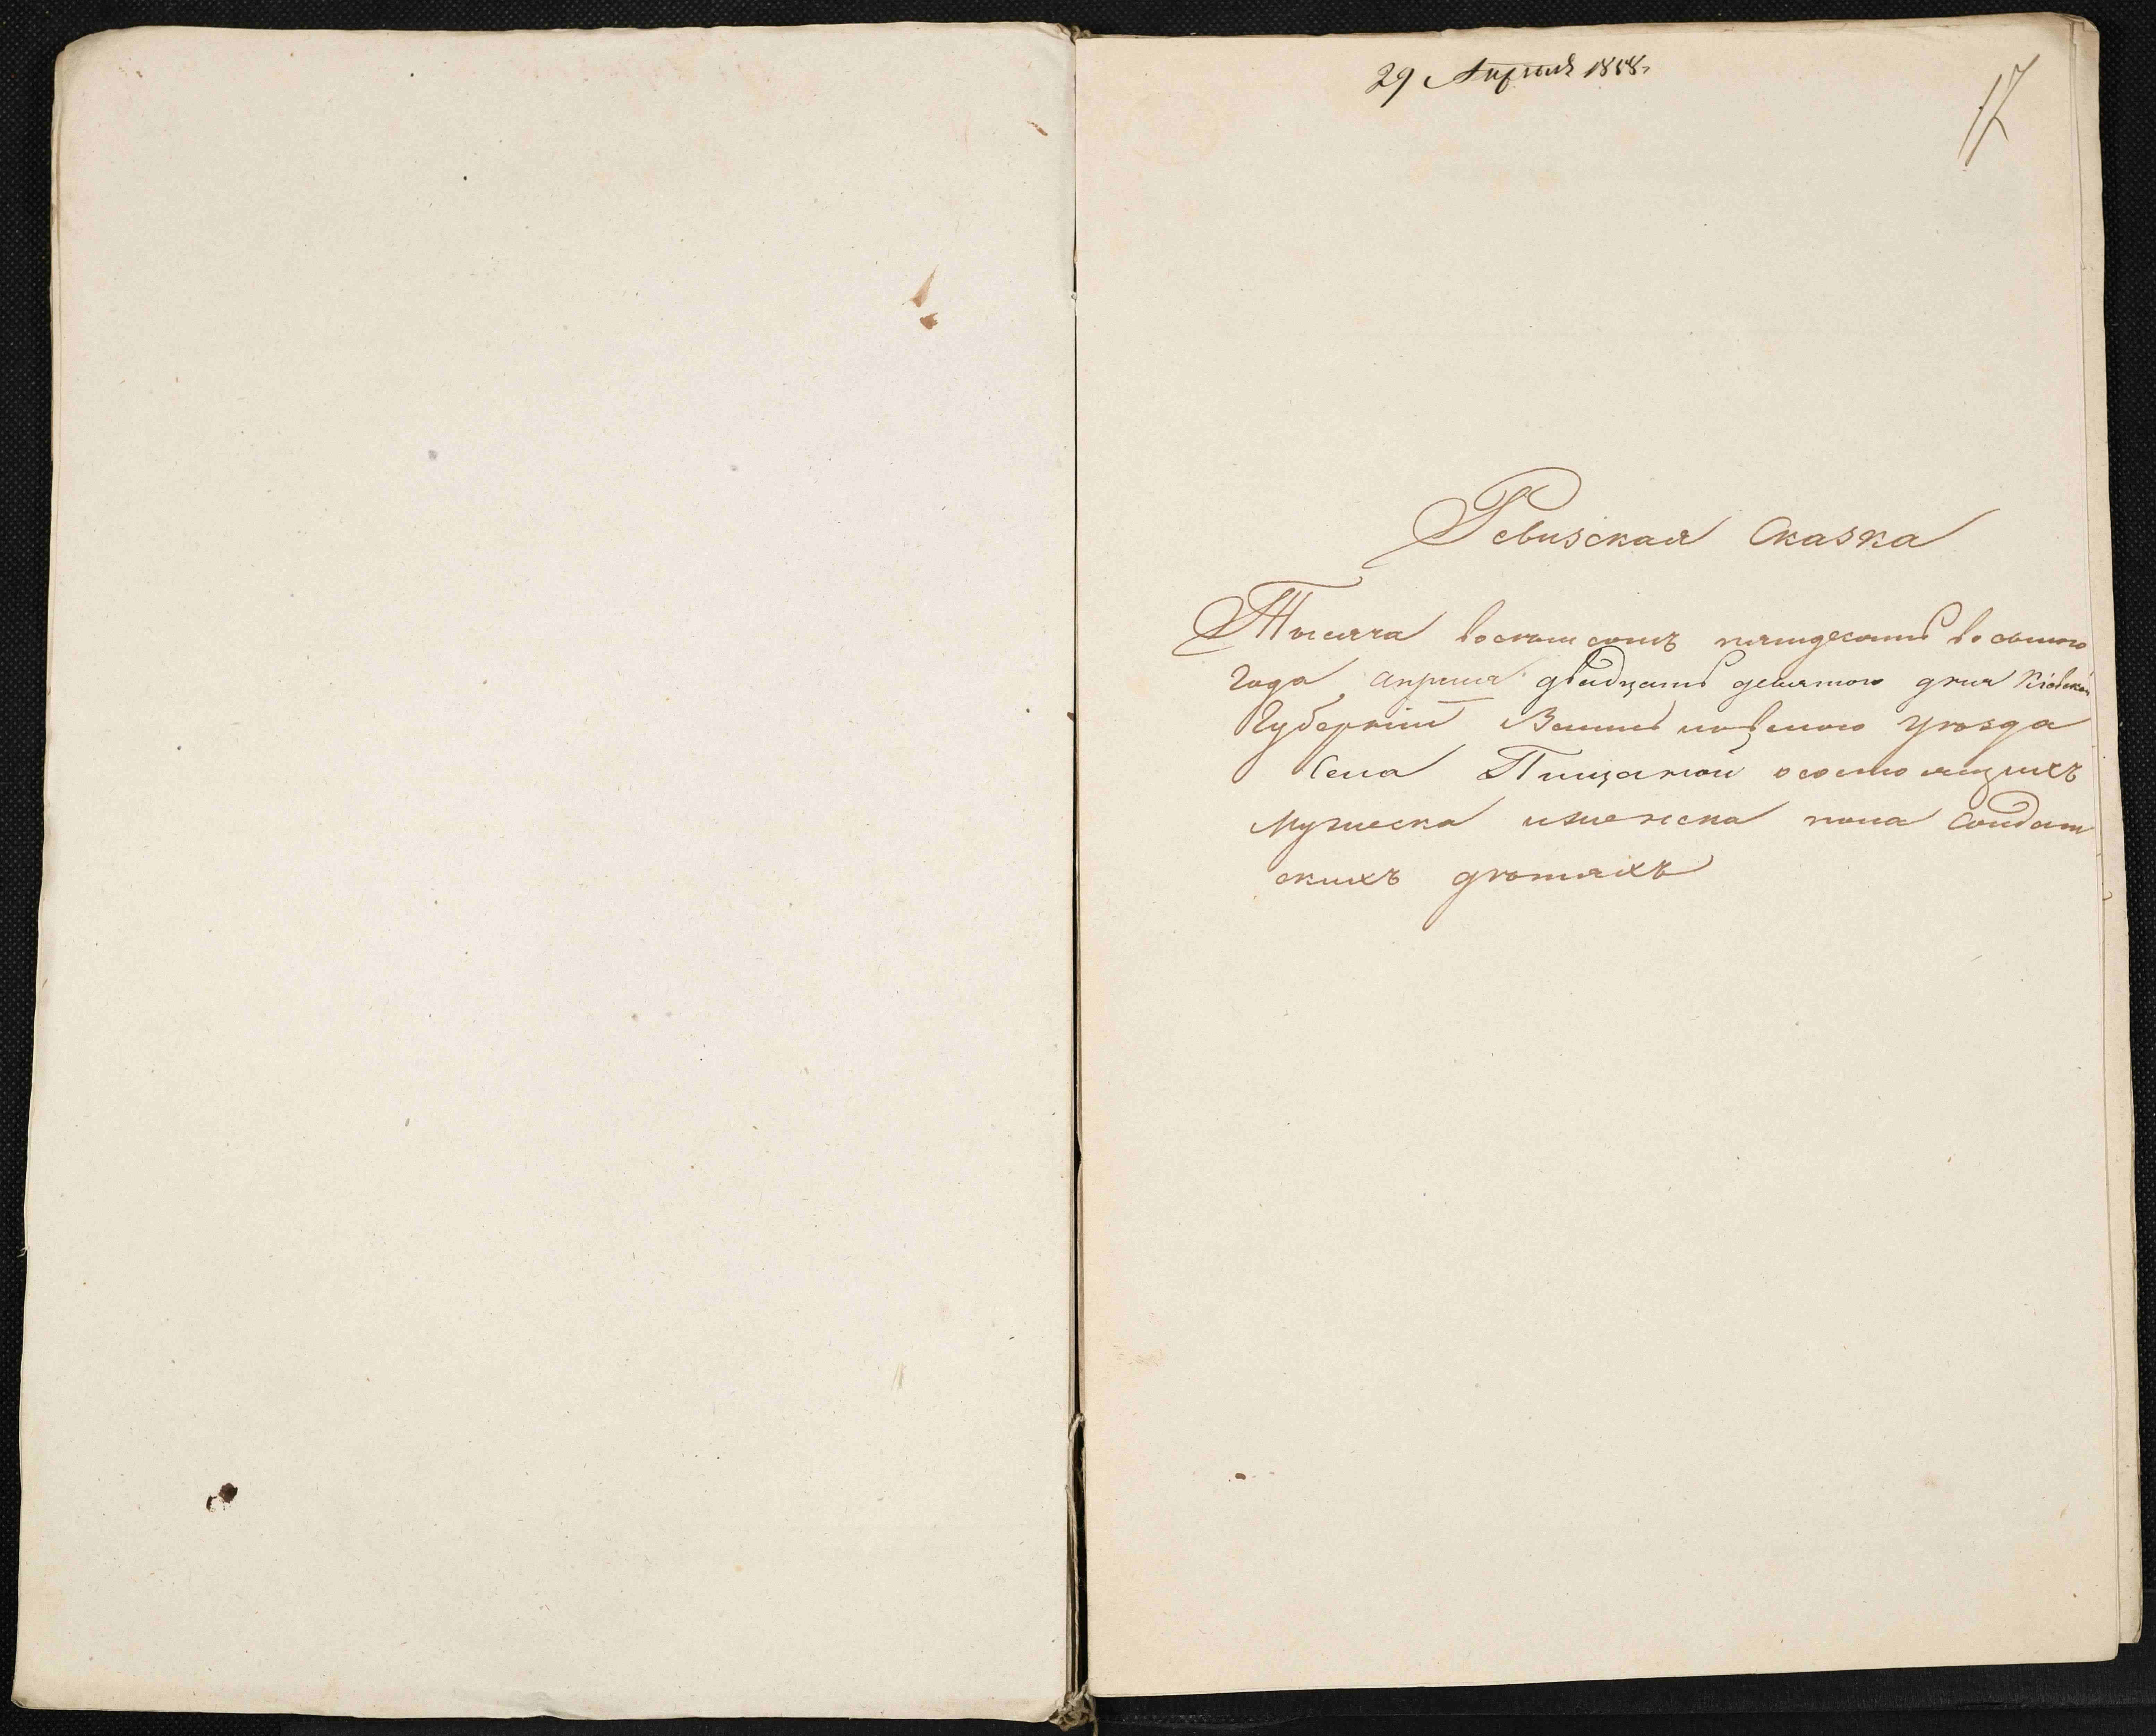 29 Апреля 1858 г
17
Ревизская Сказка
Тысяча восемьсотъ пятидесятъ восьмого
Года Апреля двадцать девятого дня Кіевской
Губерніи Звенигородского Уѣзда
Села Пищаной о состоящихъ
мужеска и женска пола Солдат
скихъ дѣтяхъ